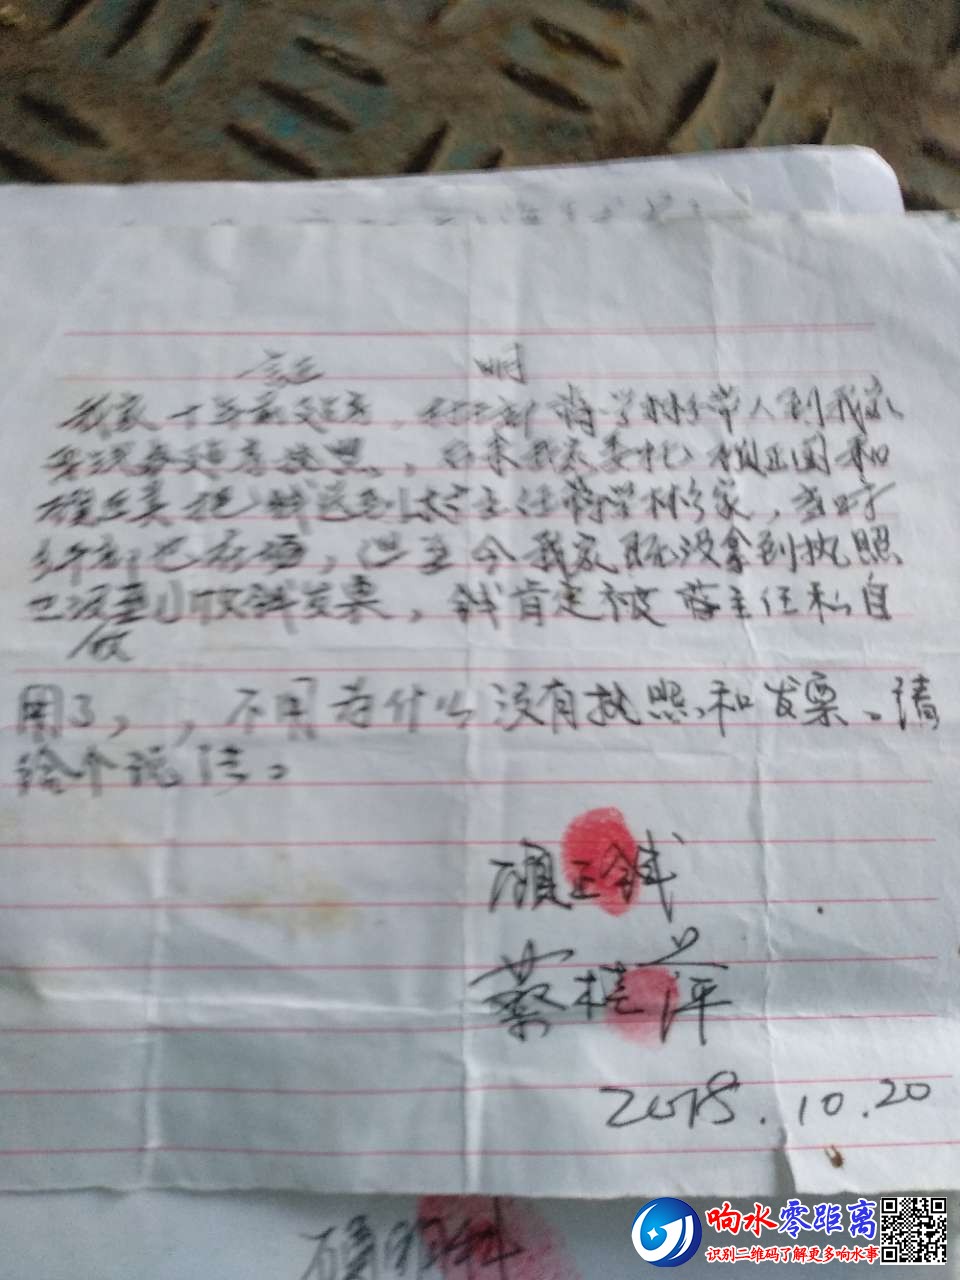 证 明
我家十年前建房，村干部蒋学彬带人到我家
要我办建房执照，后来我家委托 顾正国和
把钱送到 主任蒋学彬家，当时
村干部也在场，但至今我家既没拿到执照
也没拿到收钱发票，钱肯定被蒋主任私自
用了，，不用为什么没有执照和发票。请
给个说法。
顾正钱
蔡桂萍
2018.10.20
响水零距离
识别二维码了解更多响水事